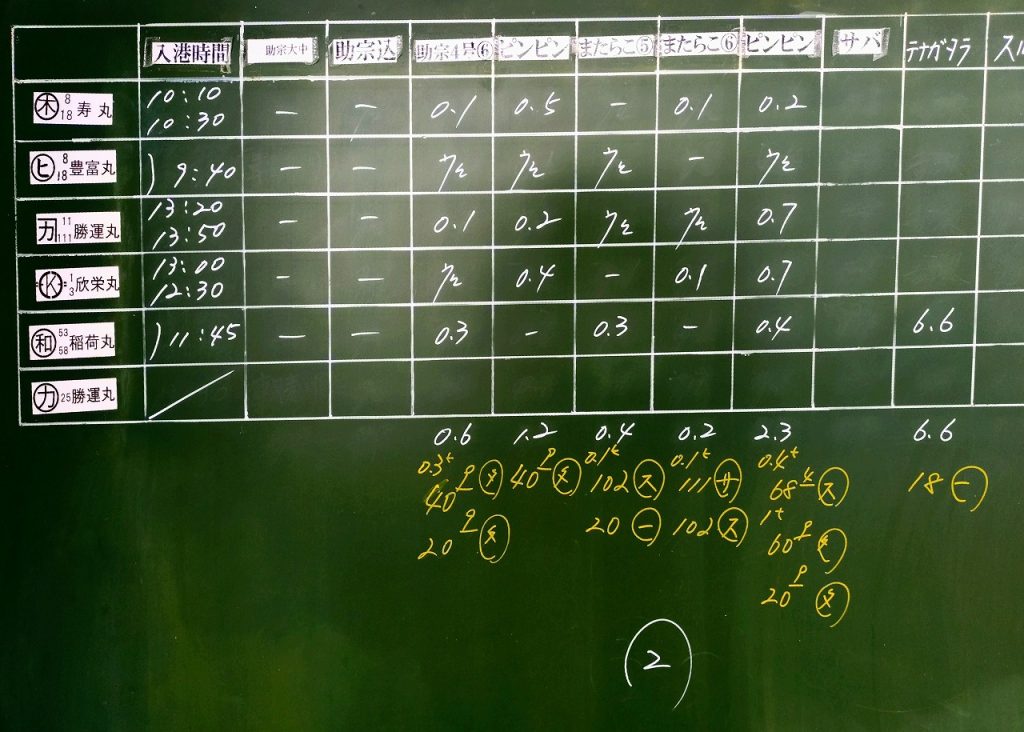 入港時間 助宗大中 助宗込 助宗4号⑥ ピンピン またらこ⑤ またらこ⑥ ピンピン サバ テナガタラ スル
木 8 18 寿丸 10:10 10:30 - - 0.1 0.5 - 0.1 0.2
ヒ 8 18 豊富丸 ) 9:40 - - - 
カ 11 111 勝運丸 13:20 13:50 - - 0.1 0.2 0.7
K 1 3 欣栄丸 13:00 12:30 - - 0.4 - 0.1 0.7
和 53 58 稲荷丸 ) 11:45 - - 0.3 - 0.3 - 0.4 6.6
カ 25 勝運丸 /
0.6 1.2 0.4 0.2 2.3 6.6
0.3t 0.1t 0.1t 0.4t
40 40 102 ス 111 サ 68 ス 18 一
1t
20 20 一 102 ス 60
20
2